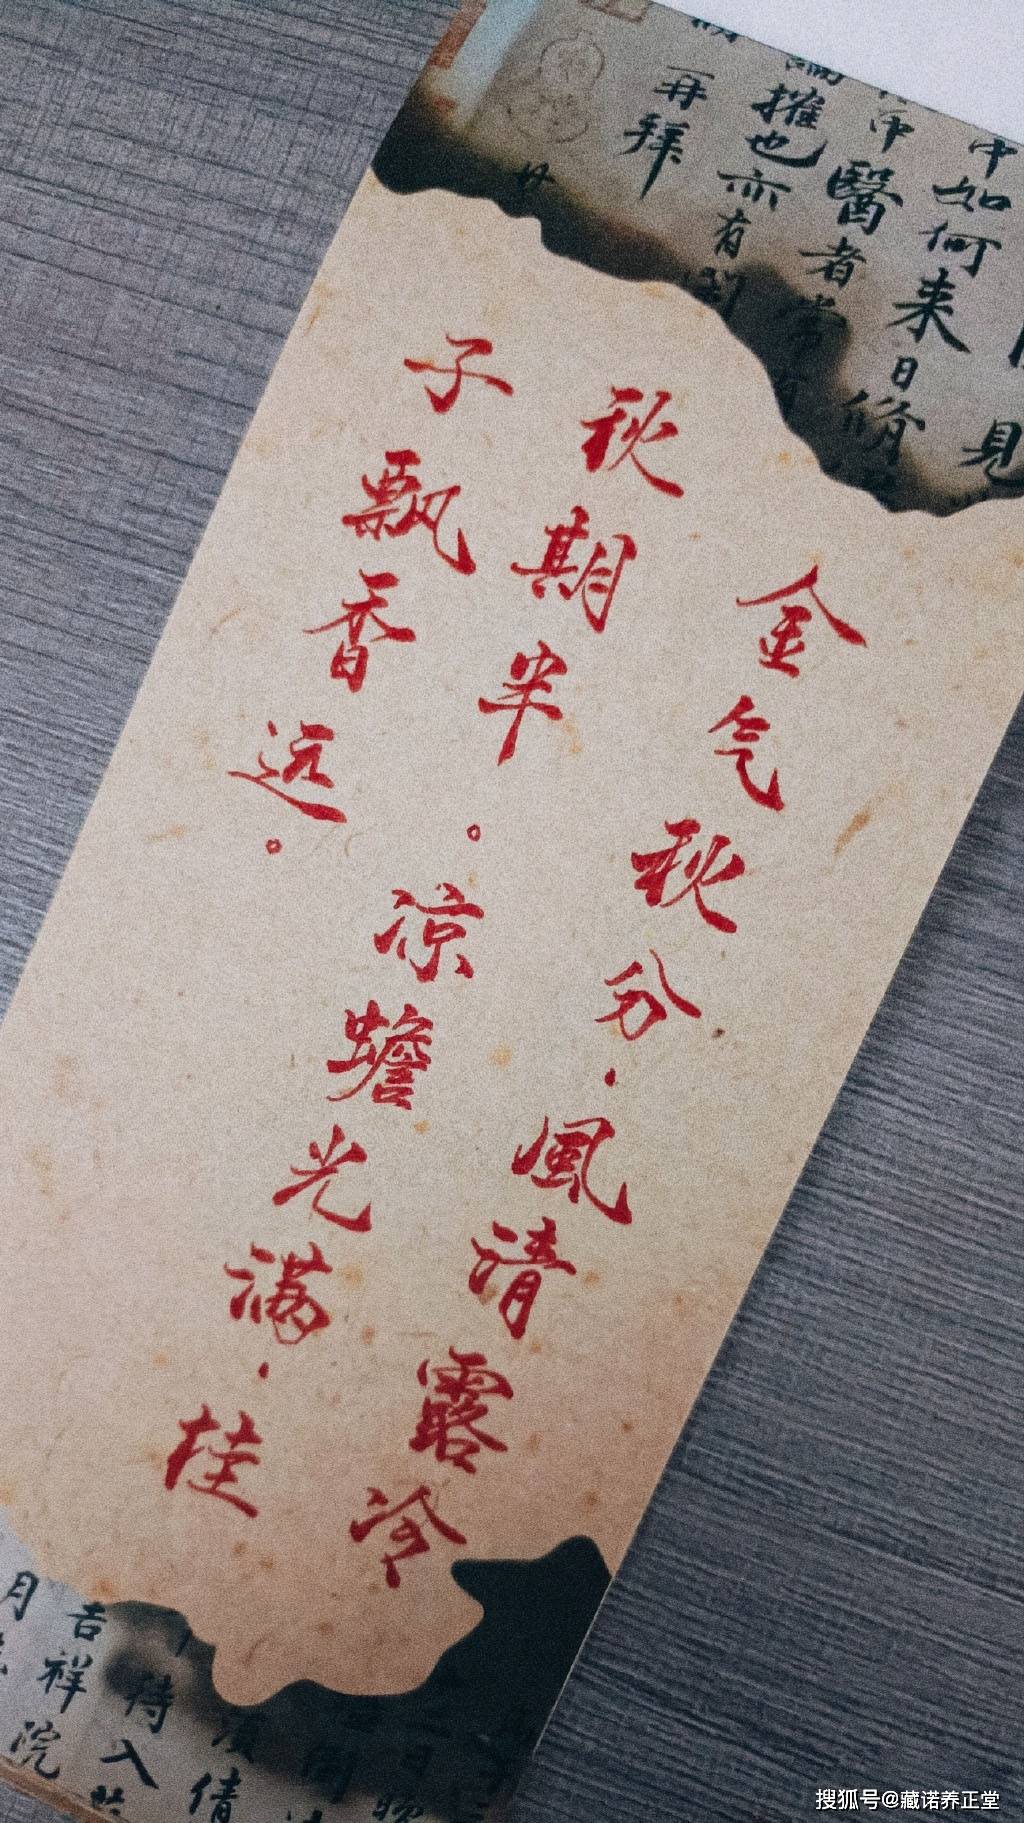 金气秋分．風清露冷
秋期半。凉蟾光满．桂
子飘香远。
見
中如何来日脩
中醫者常有
論摧也亦有到
再拜
倩
待入
吉祥院
月
搜狐号@藏诺养正堂